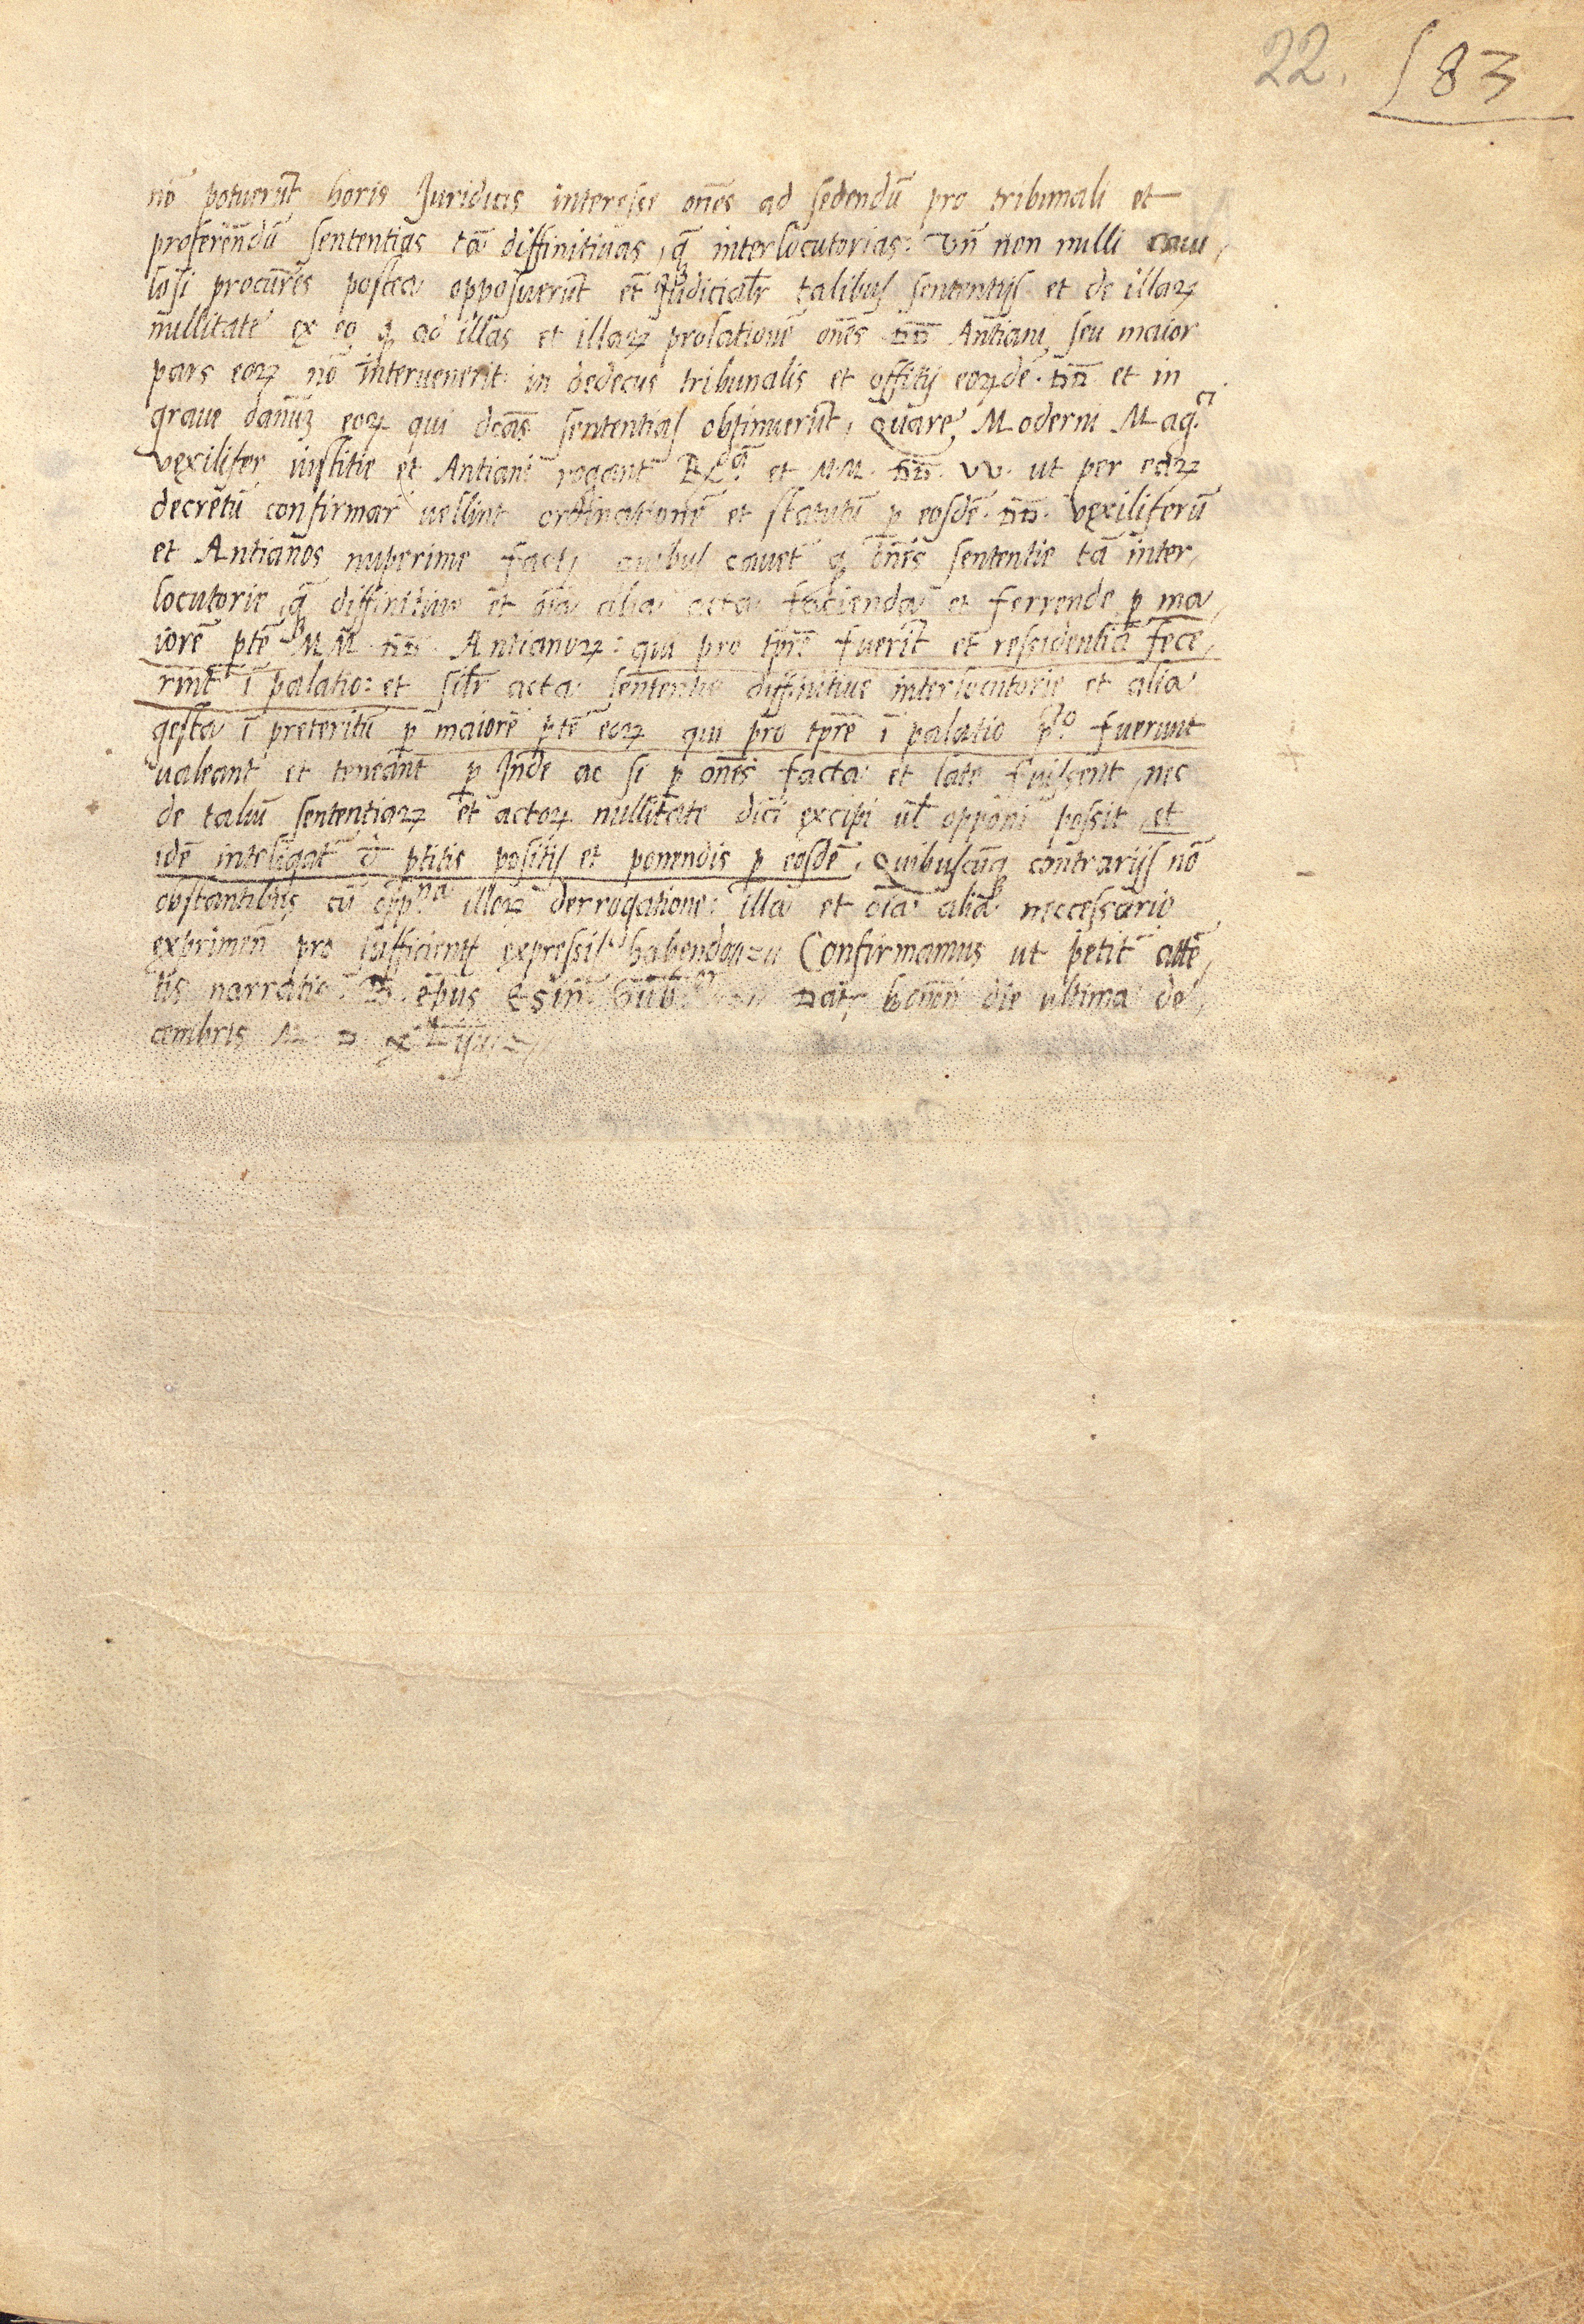 22. 83
nō potuerūt horis Juridicis interesse om̄es ad sedendū pro tribunali et
proferendū sententias tā diffinitiuas, q̄ interlocutorias: Vn̄ non nulli caui,
losi procur̄es postea opposuerūt et Judicialr̄ talibus sententijs et de illaꝝ
nullitate ex eo ꝙ ad illas et illaꝝ prolationē om̄es DD Antiani seu maior
pars eoꝝ nō interuenerit in dedecus tribunalis et offitij eoꝝdē DD et in
graue danūꝫ eoꝝ qui dcās sententias obtinuerūt, Quare Moderni Mag.ci
vexilifer iustitie et Antiani rogant et M.M. DD. VV. ut per eaꝝ
decretū confirmar̄ uellint ordinationē et statutū ꝑ eosdē DD. vexiliferū
et Antianos nuperime quibus cauet̄ ꝙ om̄es sententie tā inter,
locutorie, q̄ diffinitiue et oīa alia acta facienda et ferrende ꝑ ma,
iorē ptē M M. DD. Antianoꝝ: qui pro tpr̄e fuerīt et residentiā fece,
rint ī palatio: et silr̄ acta sententie diffinitiue interlocutorie et alia
gesta ī preteritū ꝑ maiorē ptē eoꝝ qui pro tpr̄e ī palatio p.to fuerunt
ualeant et teneant ꝑ Inde ac si ꝑ om̄es facta et late fuissent, nec
de taliū sententiaꝝ et actoꝝ nullitate dici excipi ul̄ opponi possit, et
idē inteligat̄ positis et ponendis ꝑ eosdē. Quibuscūq̨ contrarijs nō
obstantibus cū illoꝝ derrogatione: illa et oīa alia neccessario
exprimen̄ pro sufficient̄ expressis habendo Confirmamus ut petit̄ atte,
tis narratis. ep̄us Esin̄. Gub. Dat̄ bonon̄ die ultima de,
cembris M D